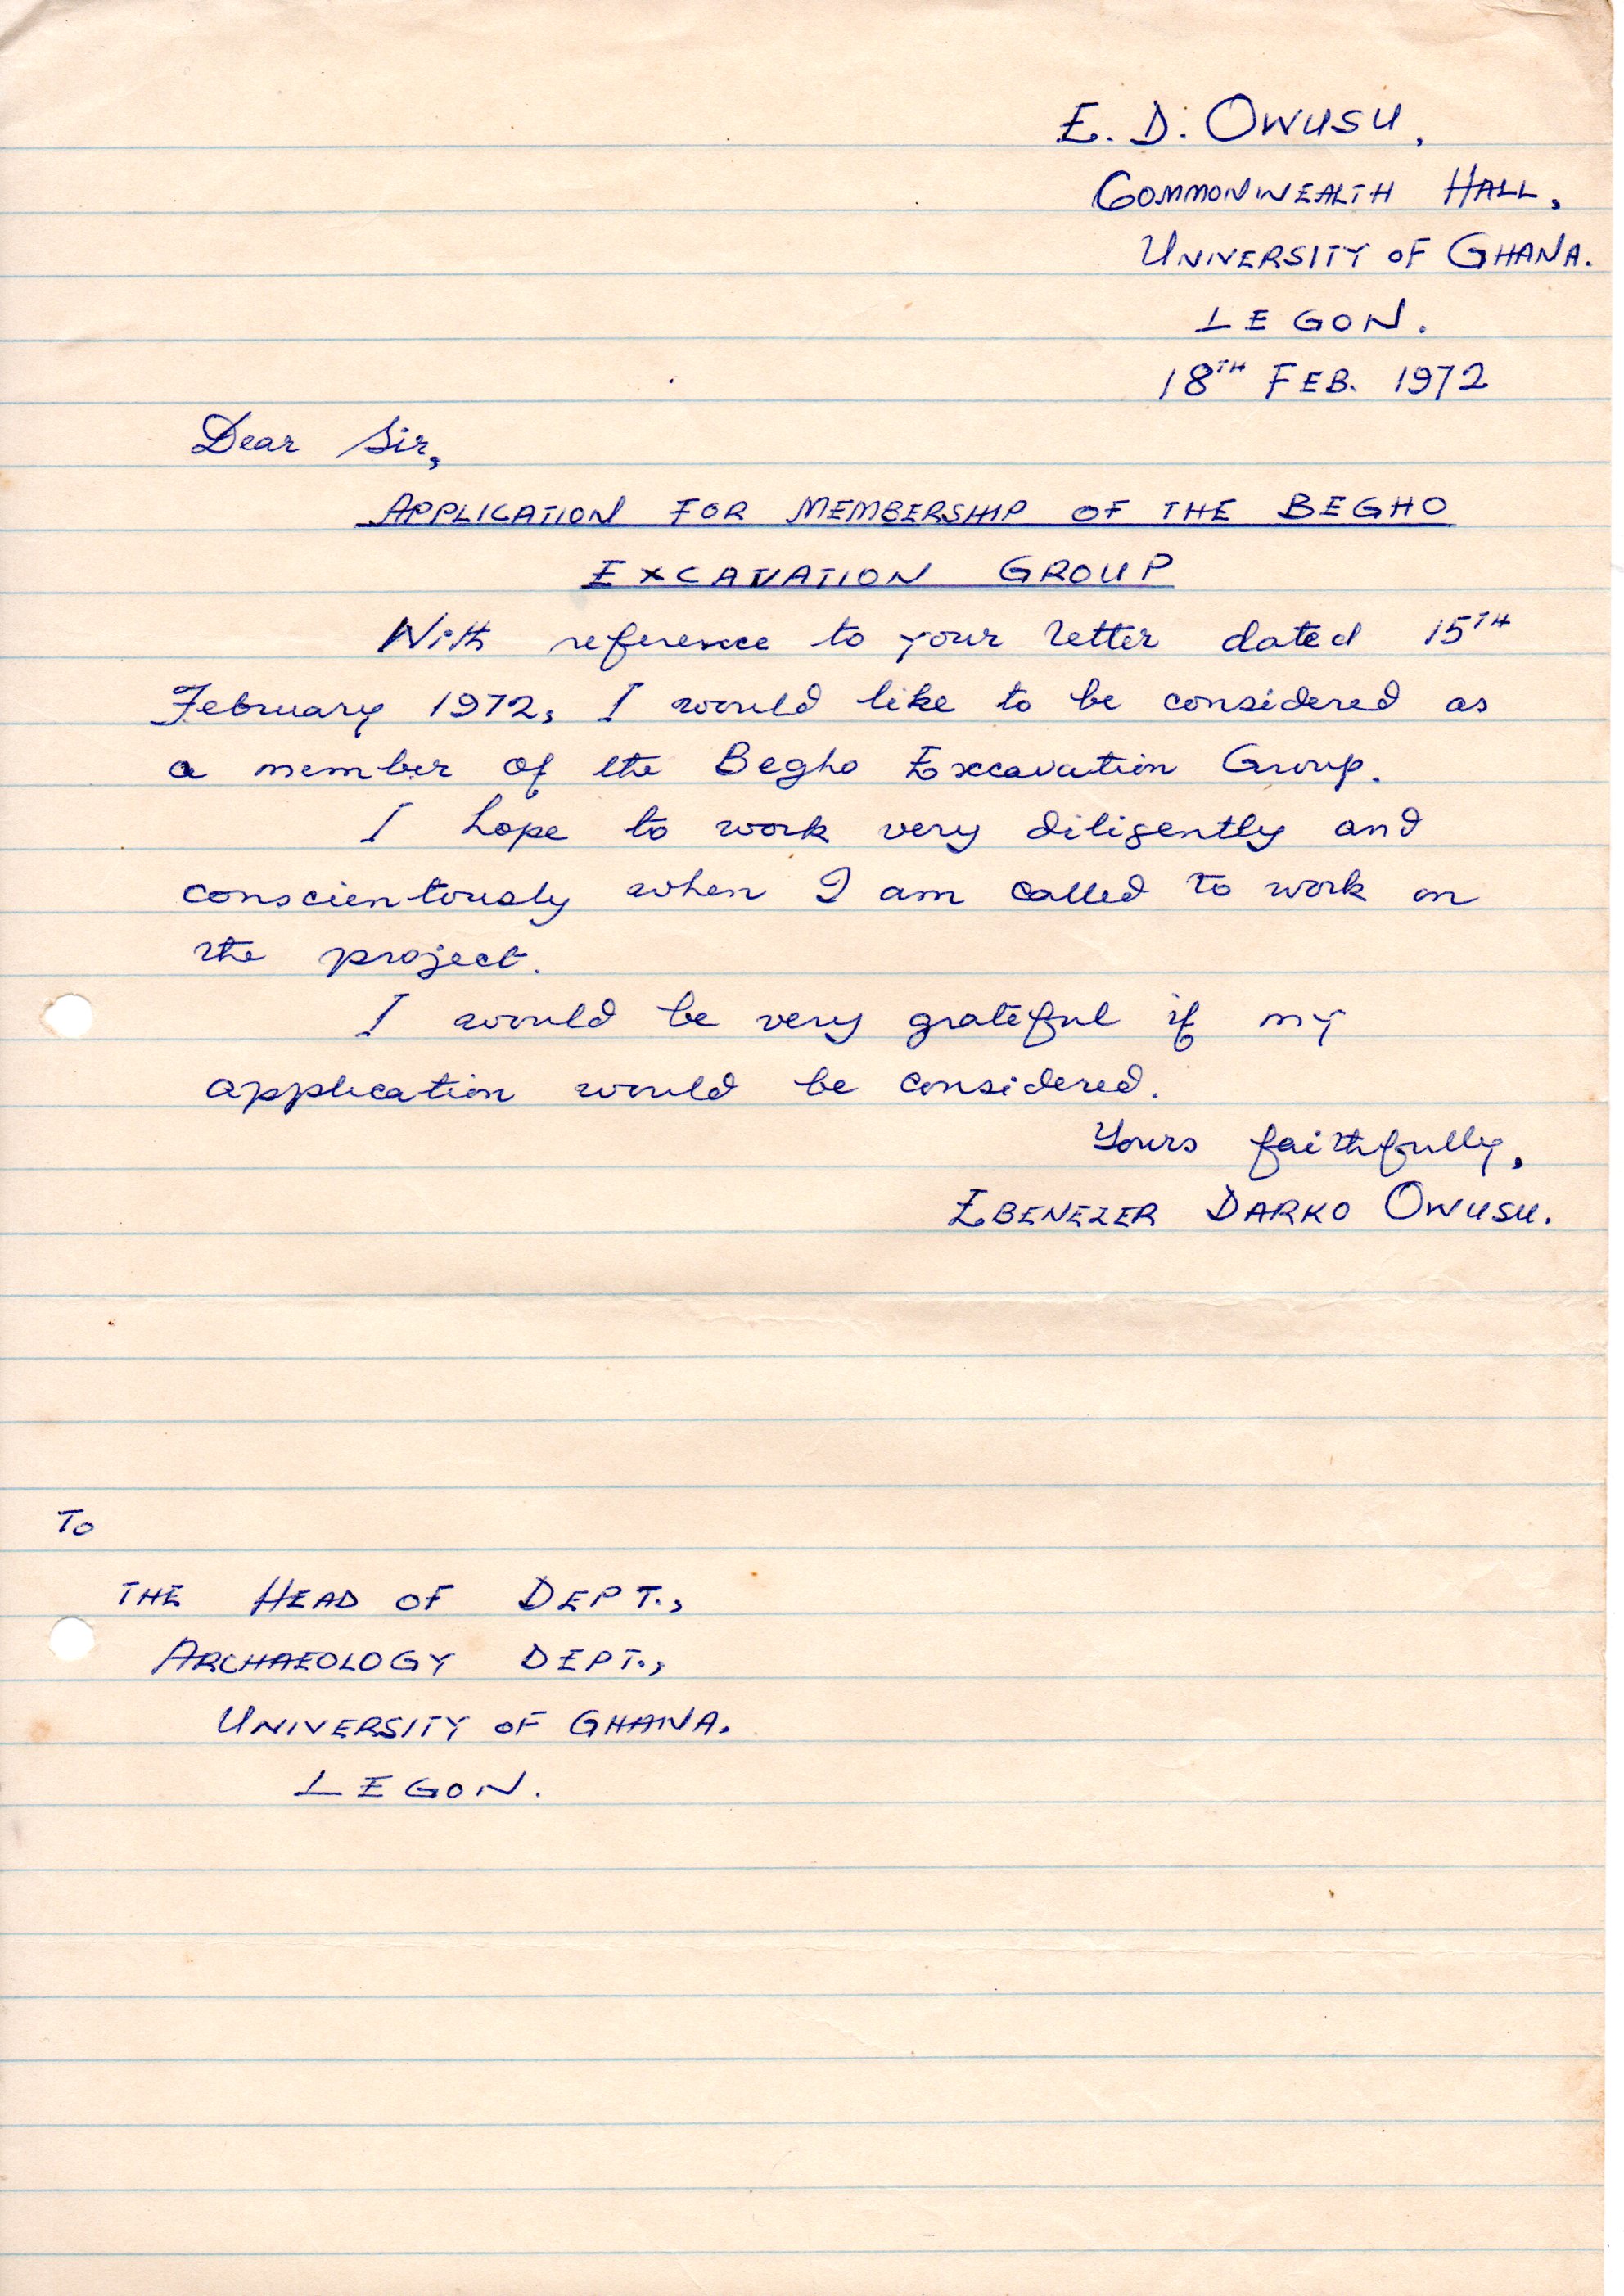 E. D. OWUSU,
COMMONWEALTH HALL,
UNIVERSITY OF GHANA.
LEGON.
18TH FEB. 1972
Dear Sir,
APPLICATION FOR MEMBERSHIP OF THE BEGHO
EXCAVATION GROUP
With reference to your letter dated 15TH
February 1972, I would like to be considered as
a member of the Begho Excavation Group.
I hope to work very diligently and
conscientously when I am called to work on
the project.
I would be very grateful if my
application would be considered.
Yours faithfully,
EBENEZER DARKO OWUSU.
To
THE HEAD OF DEPT.,
ARCHAEOLOGY DEPT.,
UNIVERSITY OF GHANA.
LEGON.